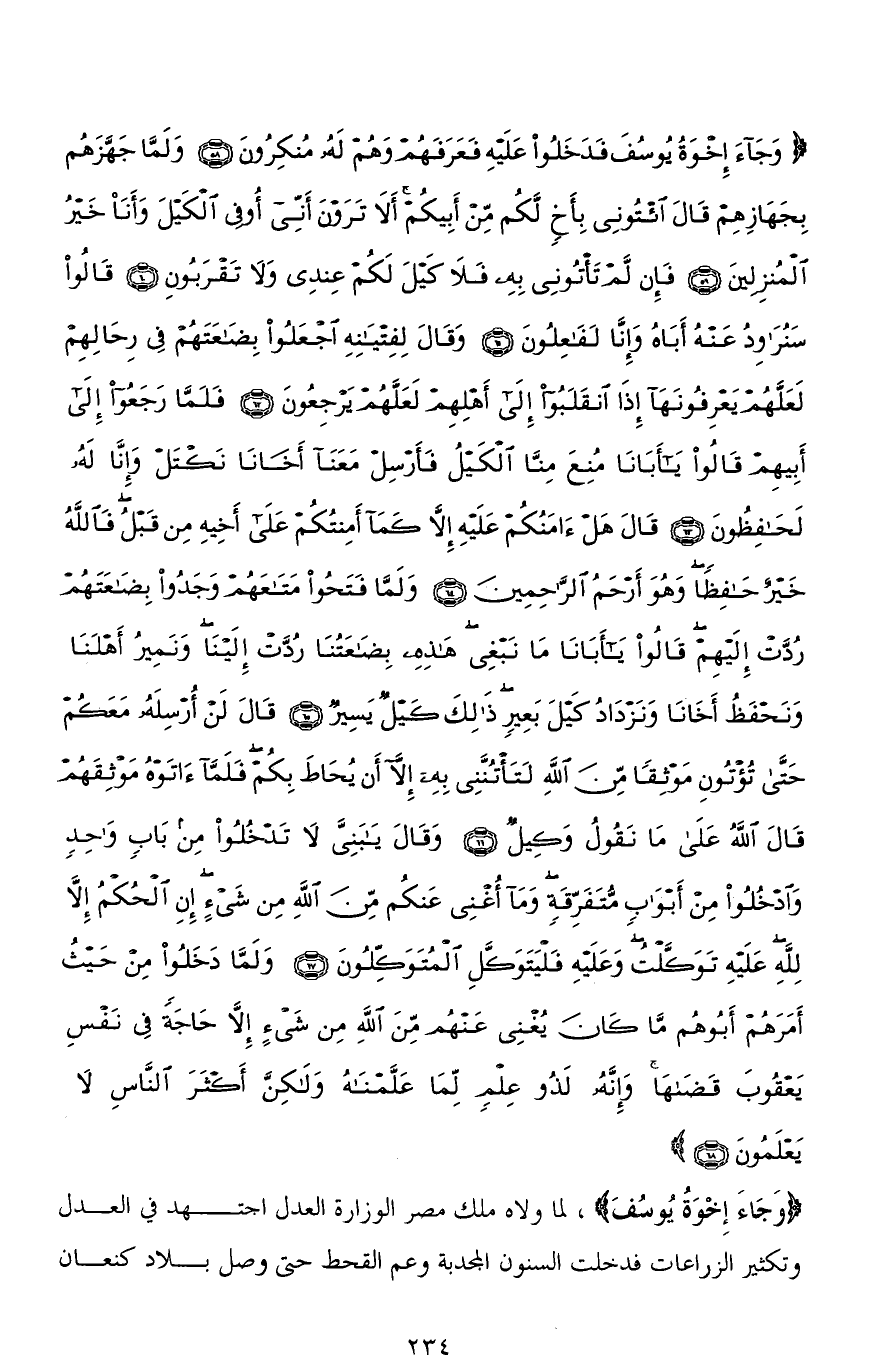 ﴿ وَجَآءَ إِخْوَةُ يُوسُفَ فَدَخَلُوا۟ عَلَيْهِ فَعَرَفَهُمْ وَهُمْ لَهُۥ مُنكِرُونَ ٥٨ وَلَمَّا جَهَّزَهُم
بِجَهَازِهِمْ قَالَ ٱئْتُونِى بِأَخٍ لَّكُم مِّنْ أَبِيكُمْ ۚ أَلَا تَرَوْنَ أَنِّىٓ أُوفِى ٱلْكَيْلَ وَأَنَا۠ خَيْرُ
ٱلْمُنزِلِينَ ٥٩ فَإِن لَّمْ تَأْتُونِى بِهِۦ فَلَا كَيْلَ لَكُمْ عِندِى وَلَا تَقْرَبُونِ ٦٠ قَالُوا۟
سَنُرَٰوِدُ عَنْهُ أَبَاهُ وَإِنَّا لَفَٰعِلُونَ ٦١ وَقَالَ لِفِتْيَٰنِهِ ٱجْعَلُوا۟ بِضَٰعَتَهُمْ فِى رِحَالِهِمْ
لَعَلَّهُمْ يَعْرِفُونَهَآ إِذَا ٱنقَلَبُوٓا۟ إِلَىٰٓ أَهْلِهِمْ لَعَلَّهُمْ يَرْجِعُونَ ٦٢ فَلَمَّا رَجَعُوٓا۟ إِلَىٰٓ
أَبِيهِمْ قَالُوا۟ يَٰٓأَبَانَا مُنِعَ مِنَّا ٱلْكَيْلُ فَأَرْسِلْ مَعَنَآ أَخَانَا نَكْتَلْ وَإِنَّا لَهُۥ
لَحَٰفِظُونَ ٦٣ قَالَ هَلْ ءَامَنُكُمْ عَلَيْهِ إِلَّا كَمَآ أَمِنتُكُمْ عَلَىٰٓ أَخِيهِ مِن قَبْلُ ۖ فَٱللَّهُ
خَيْرٌ حَٰفِظًا ۖ وَهُوَ أَرْحَمُ ٱلرَّٰحِمِينَ ٦٤ وَلَمَّا فَتَحُوا۟ مَتَٰعَهُمْ وَجَدُوا۟ بِضَٰعَتَهُمْ
رُدَّتْ إِلَيْهِمْ ۖ قَالُوا۟ يَٰٓأَبَانَا مَا نَبْغِى ۖ هَٰذِهِۦ بِضَٰعَتُنَا رُدَّتْ إِلَيْنَا ۖ وَنَمِيرُ أَهْلَنَا
وَنَحْفَظُ أَخَانَا وَنَزْدَادُ كَيْلَ بَعِيرٍ ۖ ذَٰلِكَ كَيْلٌ يَسِيرٌ ٦٥ قَالَ لَنْ أُرْسِلَهُۥ مَعَكُمْ
حَتَّىٰ تُؤْتُونِ مَوْثِقًا مِّنَ ٱللَّهِ لَتَأْتُنَّنِى بِهِۦٓ إِلَّآ أَن يُحَاطَ بِكُمْ ۖ فَلَمَّآ ءَاتَوْهُ مَوْثِقَهُمْ
قَالَ ٱللَّهُ عَلَىٰ مَا نَقُولُ وَكِيلٌ ٦٦ وَقَالَ يَٰبَنِىَّ لَا تَدْخُلُوا۟ مِنۢ بَابٍ وَٰحِدٍ
وَٱدْخُلُوا۟ مِنْ أَبْوَٰبٍ مُّتَفَرِّقَةٍ ۖ وَمَآ أُغْنِى عَنكُم مِّنَ ٱللَّهِ مِن شَىْءٍ ۖ إِنِ ٱلْحُكْمُ إِلَّا
لِلَّهِ ۖ عَلَيْهِ تَوَكَّلْتُ ۖ وَعَلَيْهِ فَلْيَتَوَكَّلِ ٱلْمُتَوَكِّلُونَ ٦٧ وَلَمَّا دَخَلُوا۟ مِنْ حَيْثُ
أَمَرَهُمْ أَبُوهُم مَّا كَانَ يُغْنِى عَنْهُم مِّنَ ٱللَّهِ مِن شَىْءٍ إِلَّا حَاجَةً فِى نَفْسِ
يَعْقُوبَ قَضَىٰهَا ۚ وَإِنَّهُۥ لَذُو عِلْمٍ لِّمَا عَلَّمْنَٰهُ وَلَٰكِنَّ أَكْثَرَ ٱلنَّاسِ لَا
يَعْلَمُونَ ٦٨ ﴾
﴿وَجَاءَ إِخْوَةُ يُوسُفَ﴾ ، لما ولاه ملك مصر الوزارة العدل اجتهد في العدل
وتكثير الزراعات فدخلت السنون المجدبة وعم القحط حتى وصل بلاد كنعان
٢٣٤